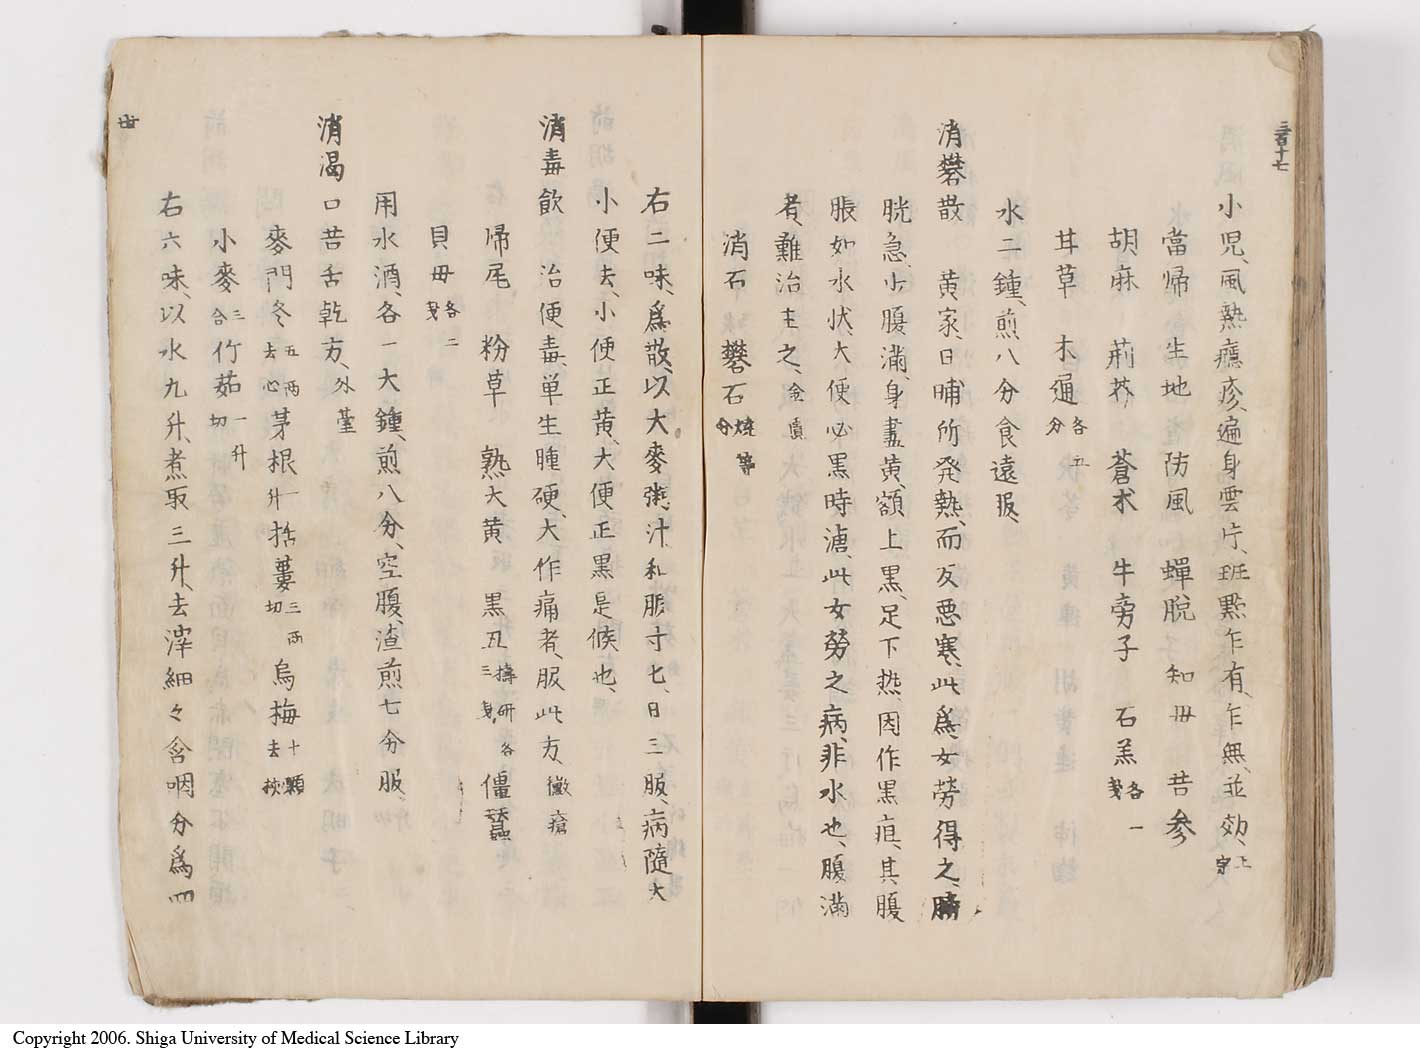 三百十七
小児、風熱癮疹、遍身雲片、班點乍有、乍無、並効、上守
當帰 生地 防風 蟬脱 知毋 苦参
胡麻 荊芥 蒼术 牛旁子 石羔各一戔
甘草 木通各五分
水二鐘、煎八分食遠服、
消礬散 黄家、日晡所発熱、而反悪寒、此為、女労得之、膀
胱急、少腹満、身盡黄、額上黒、足下熱、因作黒疸、其腹
脹如水状大便必黒時溏、此女勞之病、非水也、腹満
者、難治主之、金匱
消石 礬石燒等分
右二味、為散、以大麥粥、汁和服寸匕、日三服、病隨大
小便去、小便正黄、大便正黒是候也、
消毒飲 治便毒、単生腫硬、大作痛者、服此方、黴瘡
帰尾 粉草 熟大黄 黒丑擣研各三戔、僵蠶
貝毋各二戔
用水酒、各一大鐘、煎八分、空腹、渣煎七分服、
消渇 口苦舌乾方、外臺
麥門冬五両去心 茅根一升 括蔞三両切 烏梅十顆去核
小麥三合 竹茹一升切
右六味、以水九升、煮取三升、去滓細々含咽分為四
丗